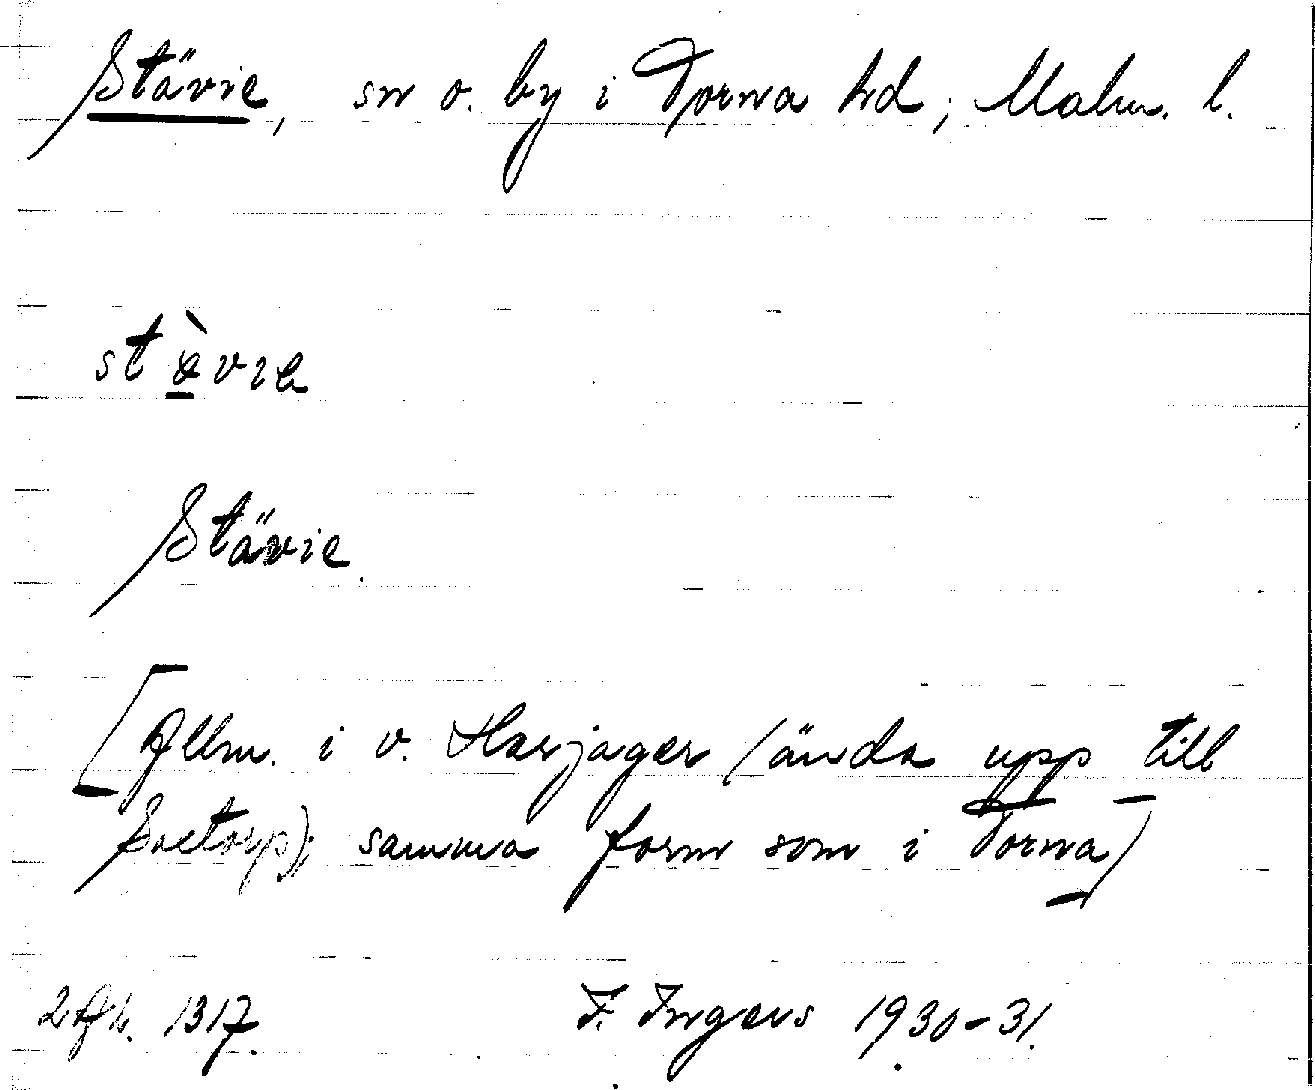 Stävie, sn o. by i Torna hd, Malm. l.
stæ̀vie
Stävie.
[Allm. i v. Harjager (ända upp till
Saxtorp); samma form som i Torna]
Ingers 1930-31.